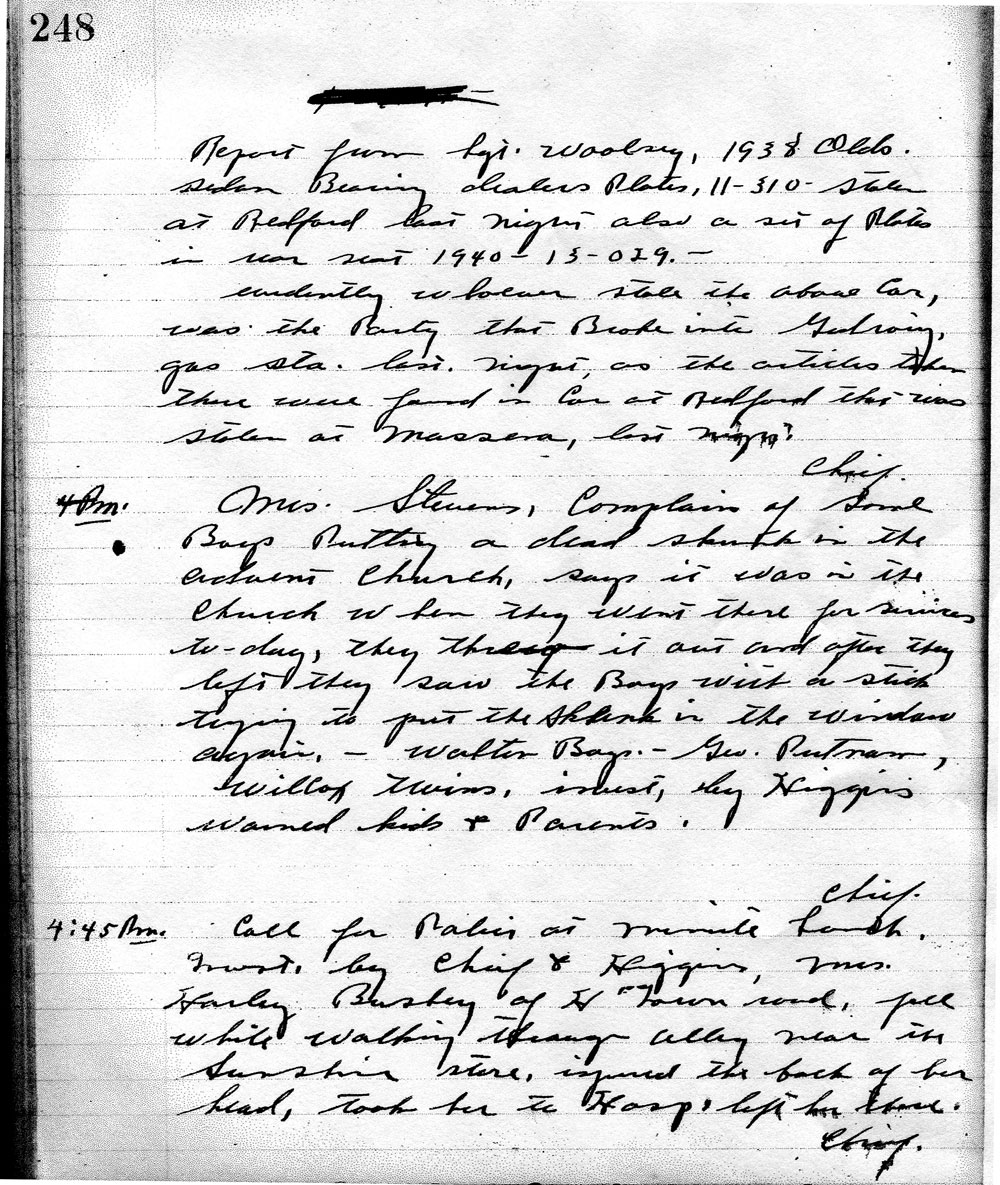 248
Report from Sgt. Woolsey, 1938 Olds.
sedan Bearing dealers Plates, 11-310- stolen
at Bedford last night also a set of Plates
in rear seat 1940 - 13-029. -
evidently whoever stole the above Car,
was the Party that Broke into
gas sta. last. night, as the articles taken
there were found in Car at Bedford that was
stolen at Massena, last night.
Chief.
4 Pm. Mrs. Stevens, Complain of Some
Boys Putting a dead skunk in the
Advent Church, says it was in the
Church when they went there for services
to-day, they threw it out and after they
left they saw the Boys with a stick
trying to put the skunk in the window
again. - Walter Boys. - Geo. Putnam,
Willcox Twins, invest, by Higgins
warned kids & Parents.
Chief.
4:45 Pm. Call for Police at Minite Lunch.
Invest. by Chief & Higgins, Mrs.
Harley Bushey of H Town road, fell
while walking through alley near the
Sunshine store, injured the back of her
head, took her to Hosp. left her there.
Chief.